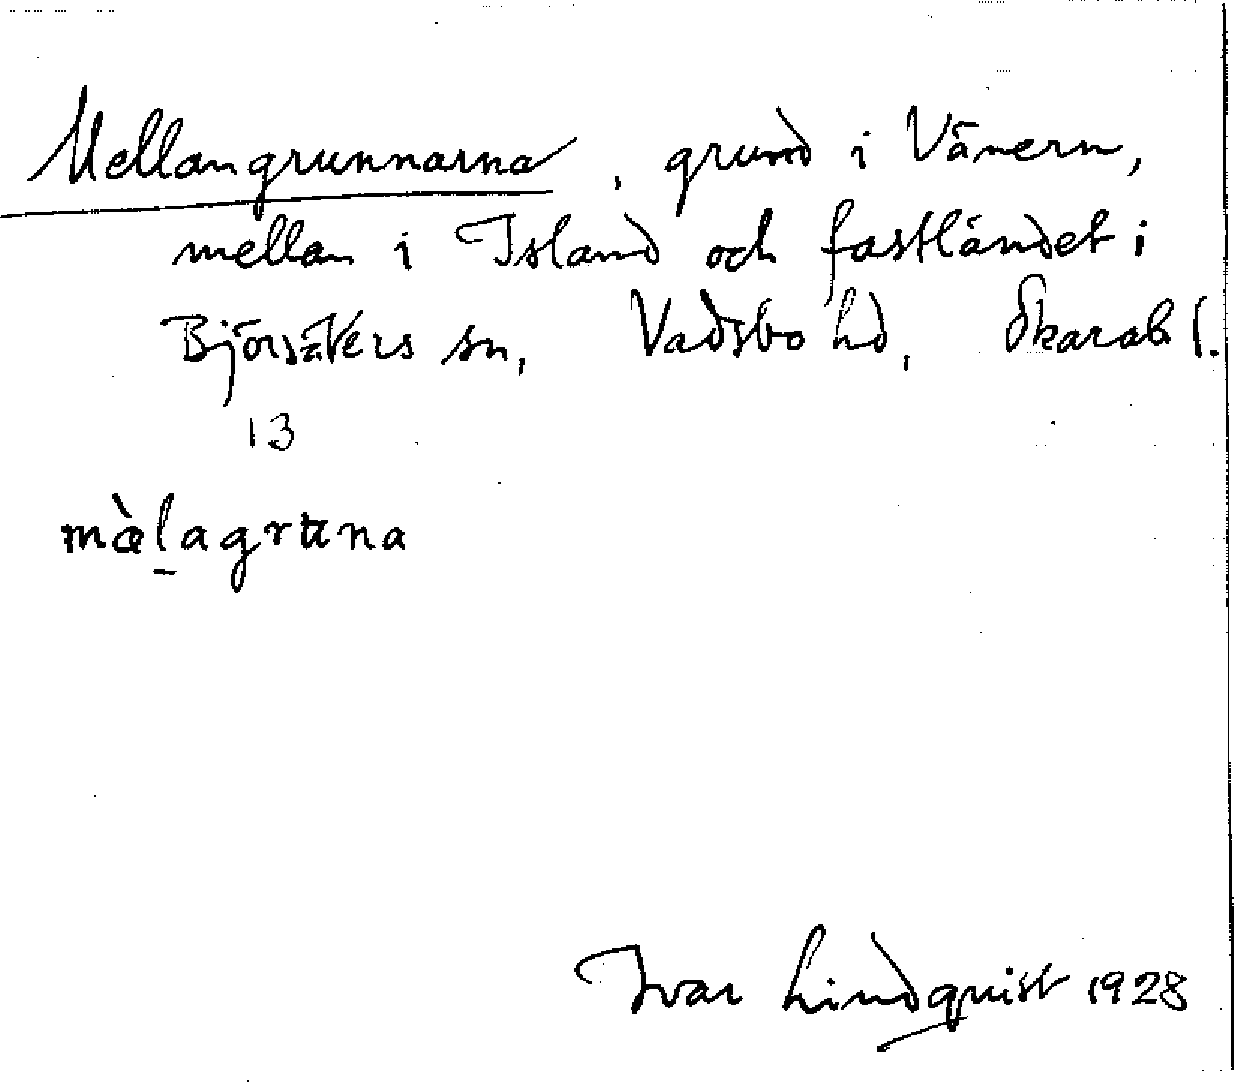 Mellangrunnarna, grund i Vänern,
mellan i Island och fastländet i
Björsäters sn, Vadsbo hd, Skarab l.
13
mæ̀l̠agrʉna
Ivar Lindquist 1928